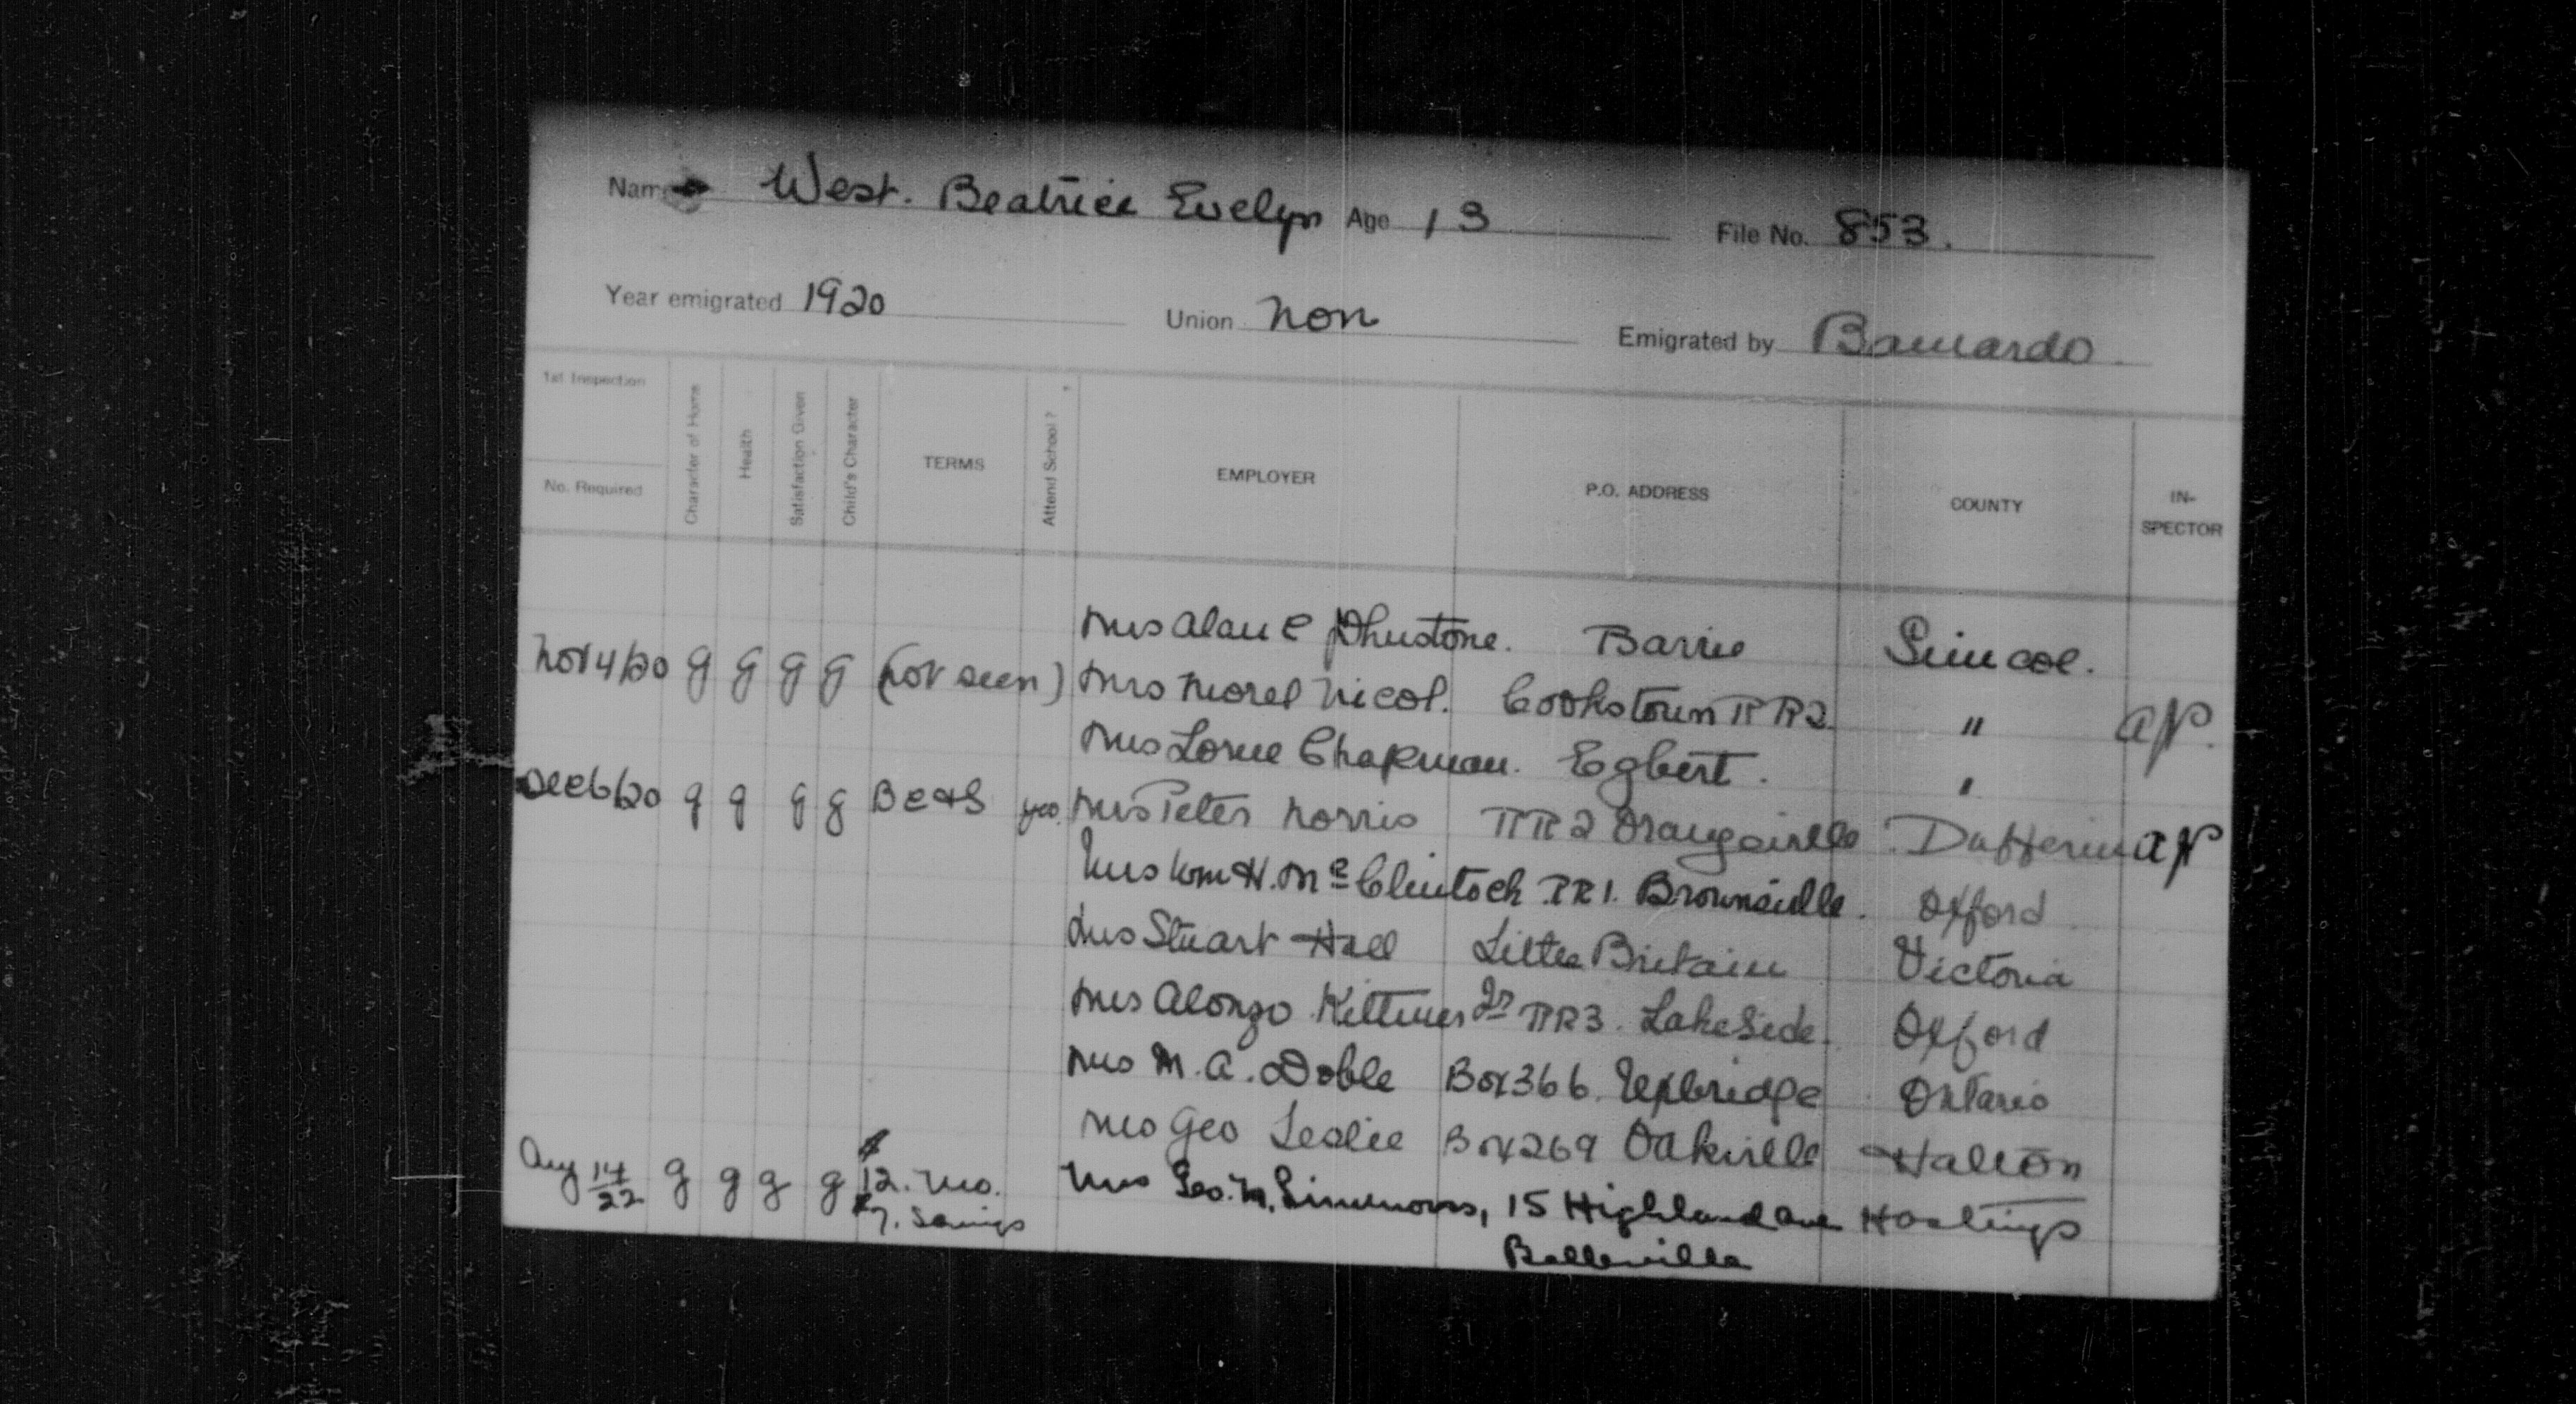 Name West. Beatrice Evelyn Age 13 File No. 853.
Year emigrated 1920 Union non Emigrated by Barnardo
1st Inspection
No. Required
Character of Home
Health
Satisfaction Given
Child's Character
TERMS
Attend School?
EMPLOYER
P.O. ADDRESS
COUNTY
IN-
SPECTOR
Mrs Alan C Johnstone. Barrie Simcoe.
Nov 4/20 g g g g (not seen) Mrs Morel Nicol. Cookstown RR2. " AP.
Mrs Lorne Chapman. Egbert. "
Dec 6/20 g g g g B C & S yes. Mrs Peter Norris RR2 Orangeville Dufferin AP
Mrs Wm H. Mc Clintock RR1. Brownsville. Oxford
Mrs Stuart Hall Little Britain Victoria
Mrs Alonzo Kittmer Jr RR3. Lakeside. Oxford
Mrs M. A. Doble Box 366. Uxbridge Ontario
Mrs Geo Leslie Box 269 Oakville Halton
Aug 14/22 g g g g $12. mo. Mrs Geo. M. Simmons, 15 Highland Ave Hastings
$7. Savings Belleville